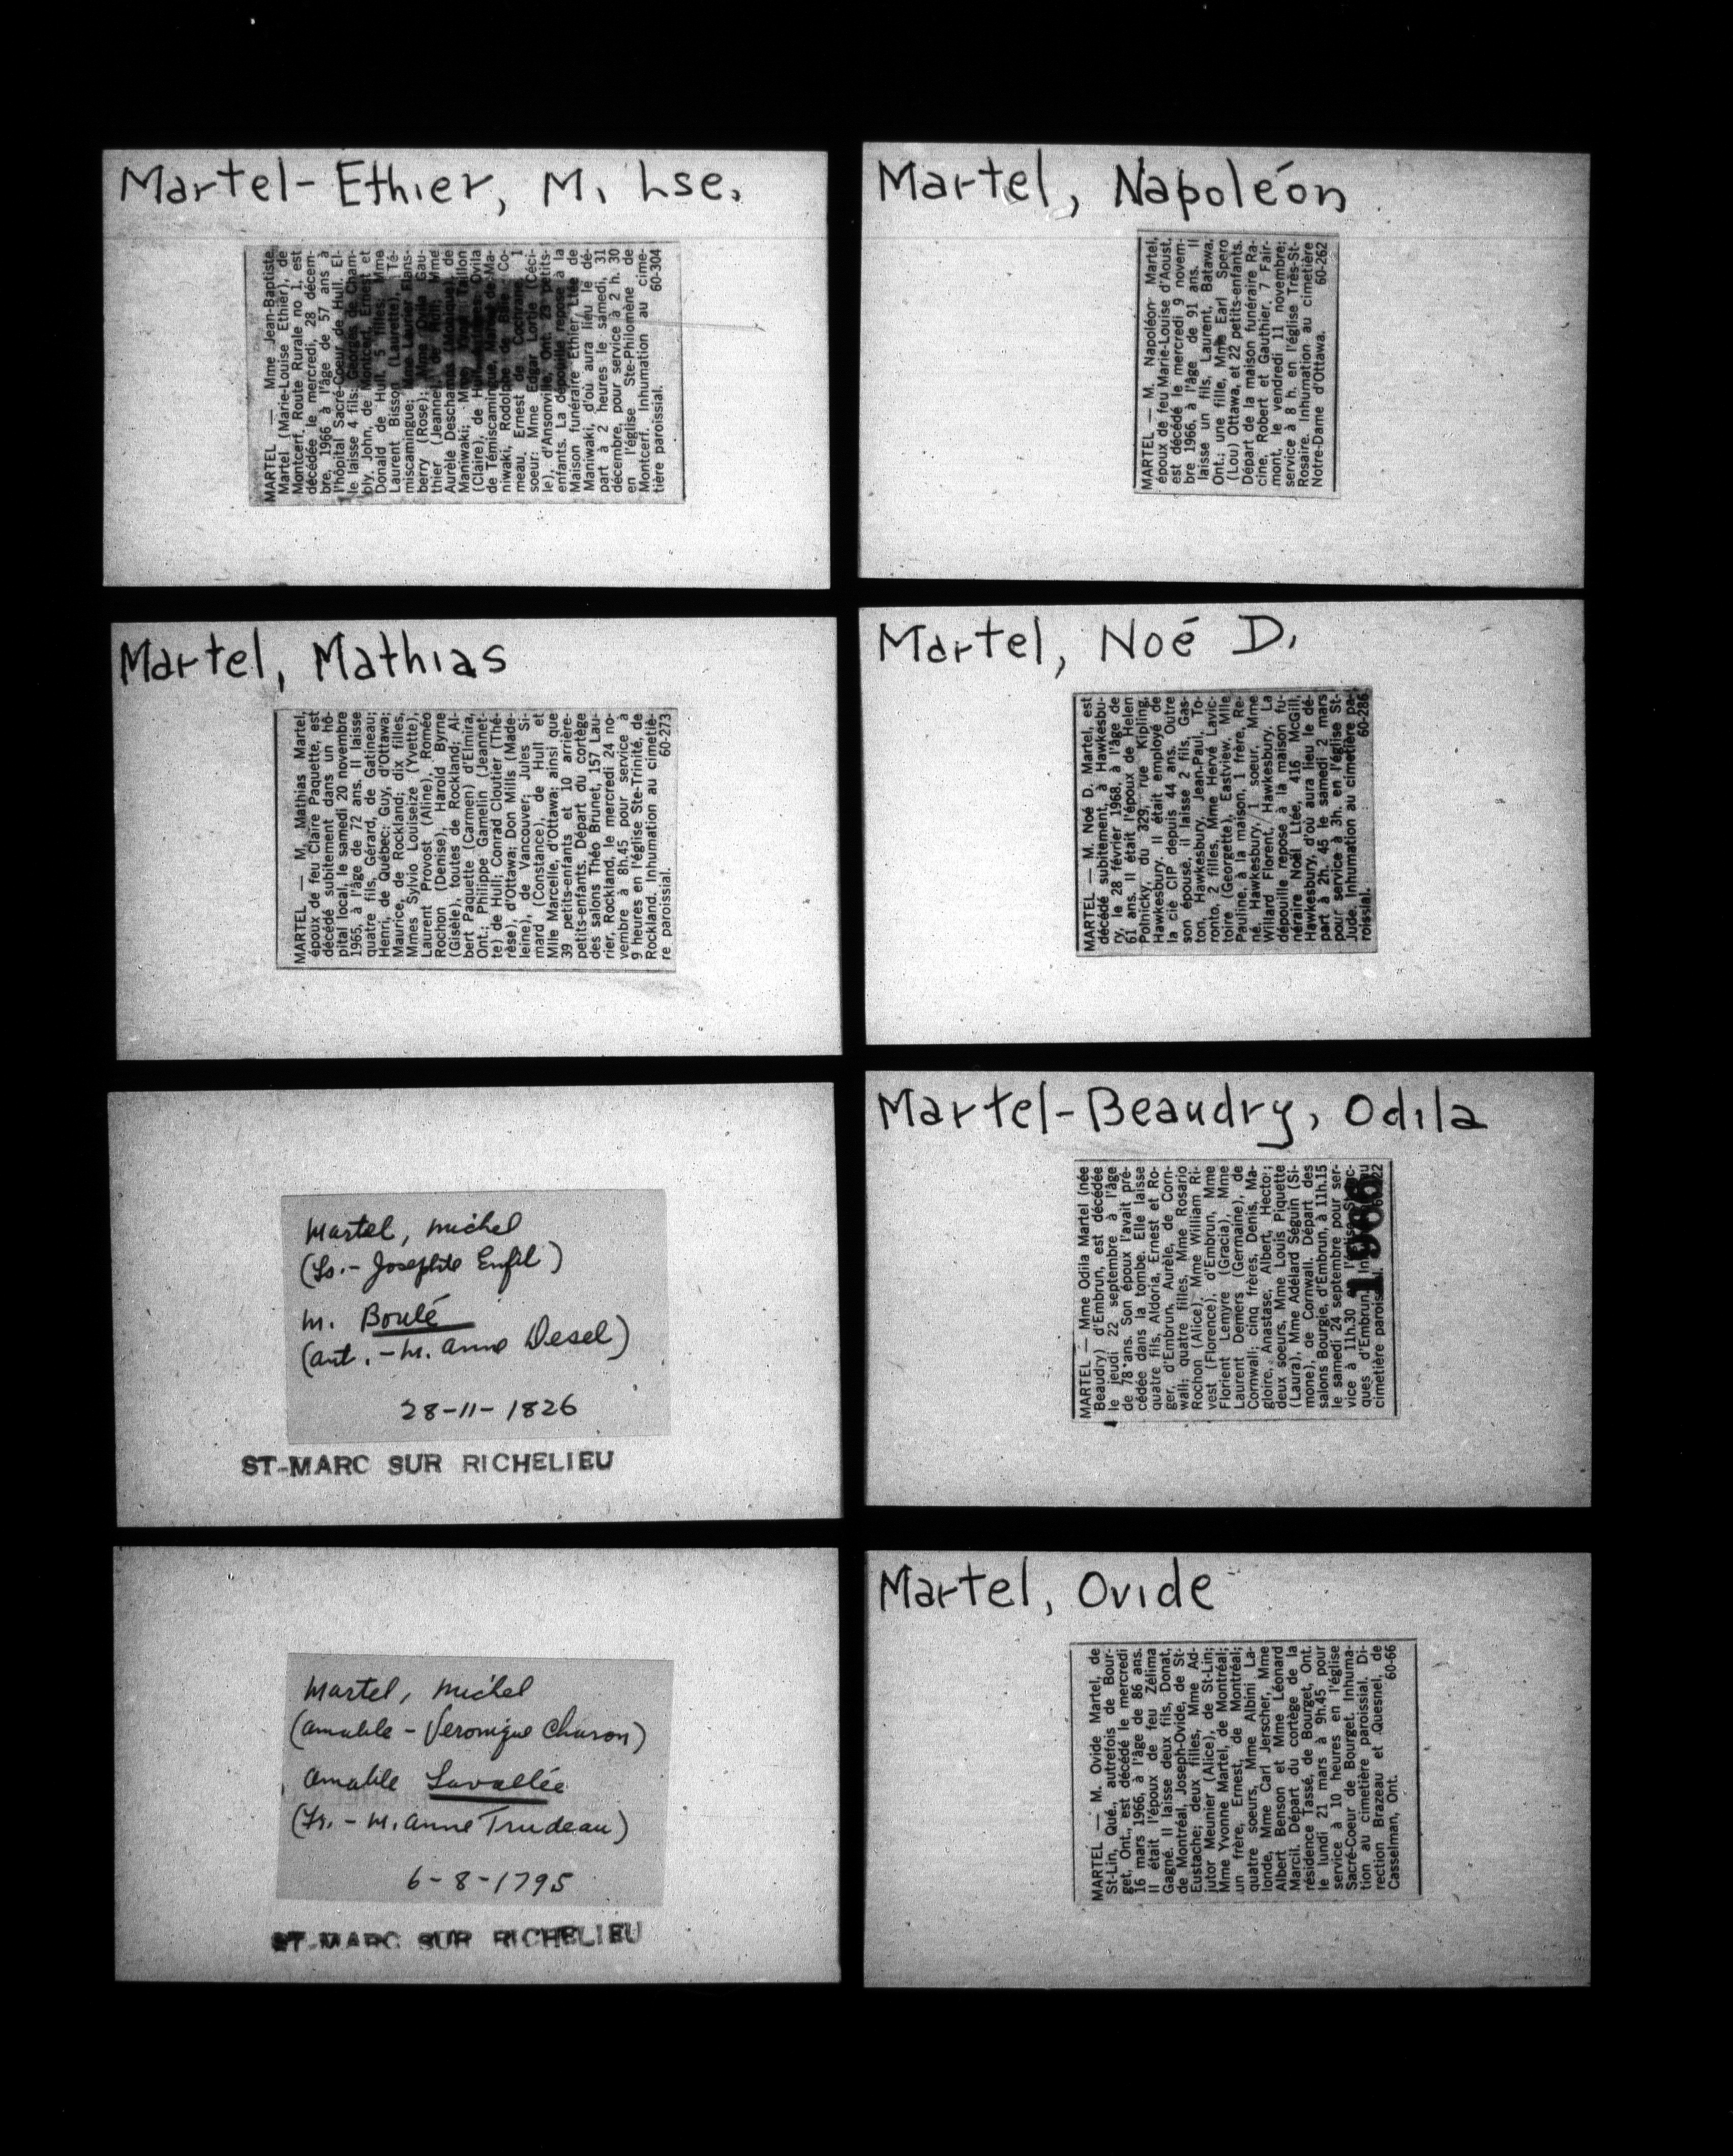 Martel-Ethier, M. Lse.
MARTEL — Mme Jean-Baptiste
Martel (Marie-Louise Ethier), de
Montcerf, Route Rurale no 1, est
décédée le mercredi, 28 décem-
bre, 1966 à l'âge de 57 ans à
l'hôpital Sacré-Coeur de Hull. El-
le laisse 4 fils: Georges de Cham-
bly, John, de Montcerf, Ernest et
Donald de Hull, 5 filles: Mme
Laurent Bisson (Laurette), Té-
miscamingue;
berry (Rose); Gau-
thier (Jeanne), de Hull; Mme
Aurèle Deschamps (Monique), de
Maniwaki; Taillon
(Claire), de Hull; Ovila
de Témiscamingue, de Ma-
niwaki, Rodolphe de Co-
meau, Ernest de Cochrane, 1
soeur: Mme Edgar Lortie (Céci-
le), d'Ansonville, Ont. 23 petits-
enfants. La dépouille repose à la
Maison funéraire Ethier Ltée de
Maniwaki, d'où aura lieu le dé-
part à 2 heures le samedi, 31
décembre, pour service à 2 h. 30
en l'église Ste-Philomène de
Montcerf. Inhumation au cime-
tière paroissial. 60-304
Martel, Napoléon
MARTEL — M. Napoléon Martel,
époux de feu Marie-Louise d'Aoust,
est décédé le mercredi 9 novem-
bre 1966, à l'âge de 91 ans. Il
laisse un fils, Laurent, Batawa,
Ont.; une fille, Mme Earl Spero
(Lou) Ottawa, et 22 petits-enfants.
Départ de la maison funéraire Ra-
cine, Robert et Gauthier, 7 Fair-
mont, le vendredi 11 novembre;
service à 8 h. en l'église Très-St-
Rosaire. Inhumation au cimetière
Notre-Dame d'Ottawa. 60-262
Martel, Mathias
MARTEL — M. Mathias Martel,
époux de feu Claire Paquette, est
décédé subitement dans un hô-
pital local, le samedi 20 novembre
1965, à l'âge de 72 ans. Il laisse
quatre fils, Gérard, de Gatineau;
Henri, de Québec; Guy, d'Ottawa;
Maurice, de Rockland; dix filles,
Mmes Sylvio Louiseize (Yvette),
Laurent Provost (Aline), Roméo
Rochon (Denise), Harold Byrne
(Gisèle), toutes de Rockland; Al-
bert Paquette (Carmen) d'Elmira,
Ont.; Philippe Gamelin (Jeannet-
te) de Hull; Conrad Cloutier (Thé-
rèse), d'Ottawa; Don Mills (Made-
leine), de Vancouver; Jules Si-
mard (Constance), de Hull et
Mlle Marcelle, d'Ottawa; ainsi que
39 petits-enfants et 10 arrière-
petits-enfants. Départ du cortège
des salons Théo Brunet, 157 Lau-
rier, Rockland, le mercredi 24 no-
vembre à 8h.45 pour service à
9 heures en l'église Ste-Trinité, de
Rockland. Inhumation au cimetiè-
re paroissial. 60-273
Martel, Noé D.
MARTEL — M. Noé D. Martel, est
décédé subitement, à Hawkesbu-
ry, le 28 février 1968, à l'âge de
61 ans. Il était l'époux de Helen
Polnicky, du 329, rue Kipling,
Hawkesbury. Il était employé de
la cie CIP depuis 44 ans. Outre
son épouse, il laisse 2 fils, Gas-
ton, Hawkesbury, Jean-Paul, To-
ronto, 2 filles, Mme Hervé Lavic-
toire (Georgette), Eastview, Mlle
Pauline, à la maison, 1 frère, Re-
né, Hawkesbury, 1 soeur, Mme
Willard Florent, Hawkesbury. La
dépouille repose à la maison fu-
néraire Noël Ltée, 416 McGill,
Hawkesbury, d'où aura lieu le dé-
part à 2h. 45 le samedi 2 mars
pour service à 3h. en l'église St-
Jude. Inhumation au cimetière pa-
roissial. 60-286
Martel, Michel
(Ls. - Josephte Enfil)
m. Boulé
(Ant. - M. Anne Desel)
28-11-1826
ST-MARC SUR RICHELIEU
Martel-Beaudry, Odila
MARTEL — Mme Odila Martel (née
Beaudry) d'Embrun, est décédée
le jeudi 22 septembre à l'âge
de 78 ans. Son époux l'avait pré-
cédée dans la tombe. Elle laisse
quatre fils, Aldoria, Ernest et Ro-
ger, d'Embrun, Aurèle, de Corn-
wall; quatre filles, Mme Rosario
Rochon (Alice), Mme William Ri-
vest (Florence), d'Embrun, Mme
Florient Lemyre (Gracia), Mme
Laurent Demers (Germaine), de
Cornwall; cinq frères, Denis, Ma-
gloire, Anastase, Albert, Hector;
deux soeurs, Mme Louis Piquette
(Laura), Mme Adélard Séguin (Si-
mone), de Cornwall. Départ des
salons Bourgie, d'Embrun, à 11h.15
le samedi 24 septembre pour ser-
vice à 11h.30
ques d'Embrun. au
cimetière 22
1966
Martel, Michel
(Amable - Veronique Charon)
Amable Lavallée
(Fr. - M. Anne Trudeau)
6-8-1795
ST-MARC SUR RICHELIEU
Martel, Ovide
MARTEL — M. Ovide Martel, de
St-Lin, Qué., autrefois de Bour-
get, Ont., est décédé le mercredi
16 mars 1966, à l'âge de 86 ans.
Il était l'époux de feu Zélima
Gagné. Il laisse deux fils, Donat,
de Montréal, Joseph-Ovide, de St-
Eustache; deux filles, Mme Ad-
jutor Meunier (Alice), de St-Lin;
Mme Yvonne Martel, de Montréal;
un frère, Ernest, de Montréal;
quatre soeurs, Mme Albini La-
londe, Mme Carl Jerscher, Mme
Albert Benson et Mme Léonard
Marcil. Départ du cortège de la
résidence Tassé, de Bourget, Ont.
le lundi 21 mars à 9h.45 pour
service à 10 heures en l'église
Sacré-Coeur de Bourget. Inhuma-
tion au cimetière paroissial. Di-
rection Brazeau et Quesnel, de
Casselman, Ont. 60-66